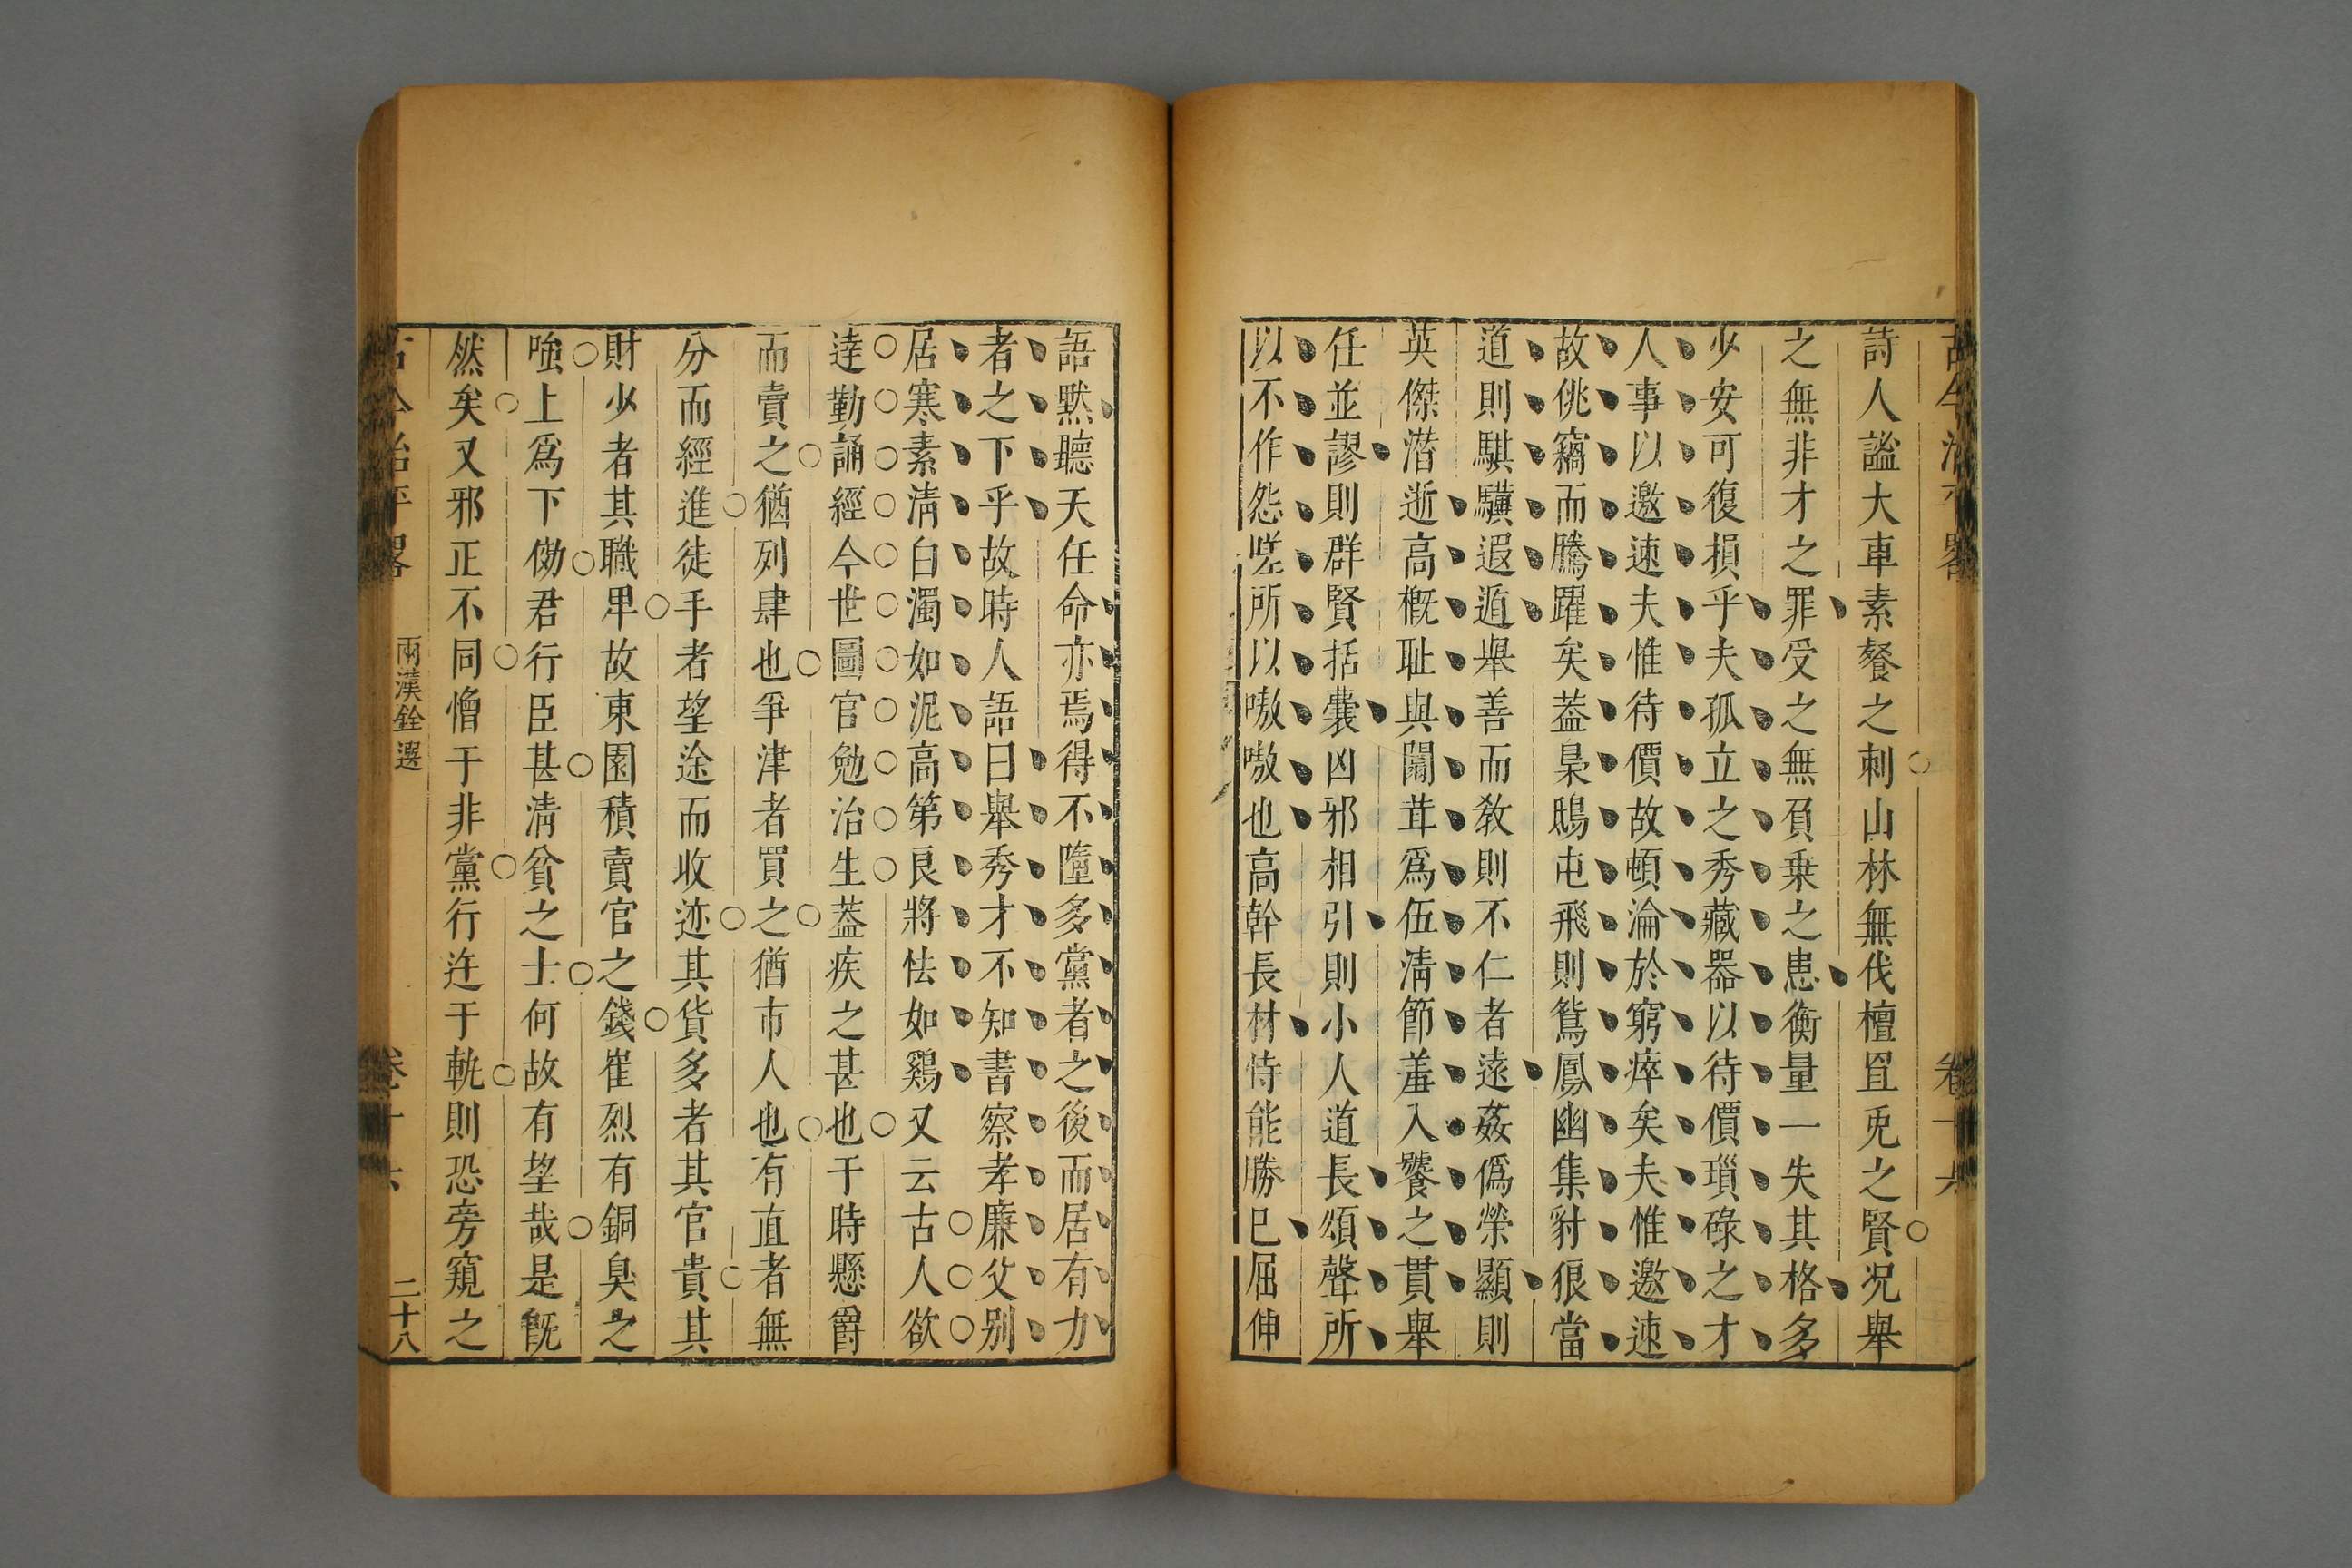 詩人謐大車素餐之刺山林無伐檀罝兎之賢况舉
之無非才之罪受之無負乗之患衡量一失其格多
少安可復損乎夫孤立之秀藏器以待價瑣碌之才
人事以邀速夫惟待價故頓淪於窮瘁矣夫惟邀速
故佻竊而騰躍矣葢梟鴟屯飛則鴛鳳幽集豺狼當
道則騏驥遐遁舉善而敎則不仁者遠姦僞榮顯則
英傑潛逝高槪耻與闒茸爲伍淸節羞入饕之貫舉
任並謬則群賢括囊凶邪相引則小人道長頌聲所
以不作怨嗟所以嗷嗷也高幹長材恃能勝巳屈伸
語黙聽天任命亦焉得不墮多黨者之後而居有力
者之下乎故時人語曰舉秀才不知書察孝廉父别
居寒素淸白濁如泥高第良將怯如鷄又云古人欲
達勤誦經今世圖官勉治生葢疾之甚也于時懸爵
而賣之猶列肆也爭津者買之猶市人也有直者無
分而經進徒手者望途而收迹其貨多者其官貴其
財少者其職卑故東園積賣官之錢崔烈有銅臭之
嗤上爲下傚君行臣甚淸貧之士何故有望哉是旣
然矣又邪正不同憎于非黨行迕于軌則恐旁窺之
兩漢銓選
二十八